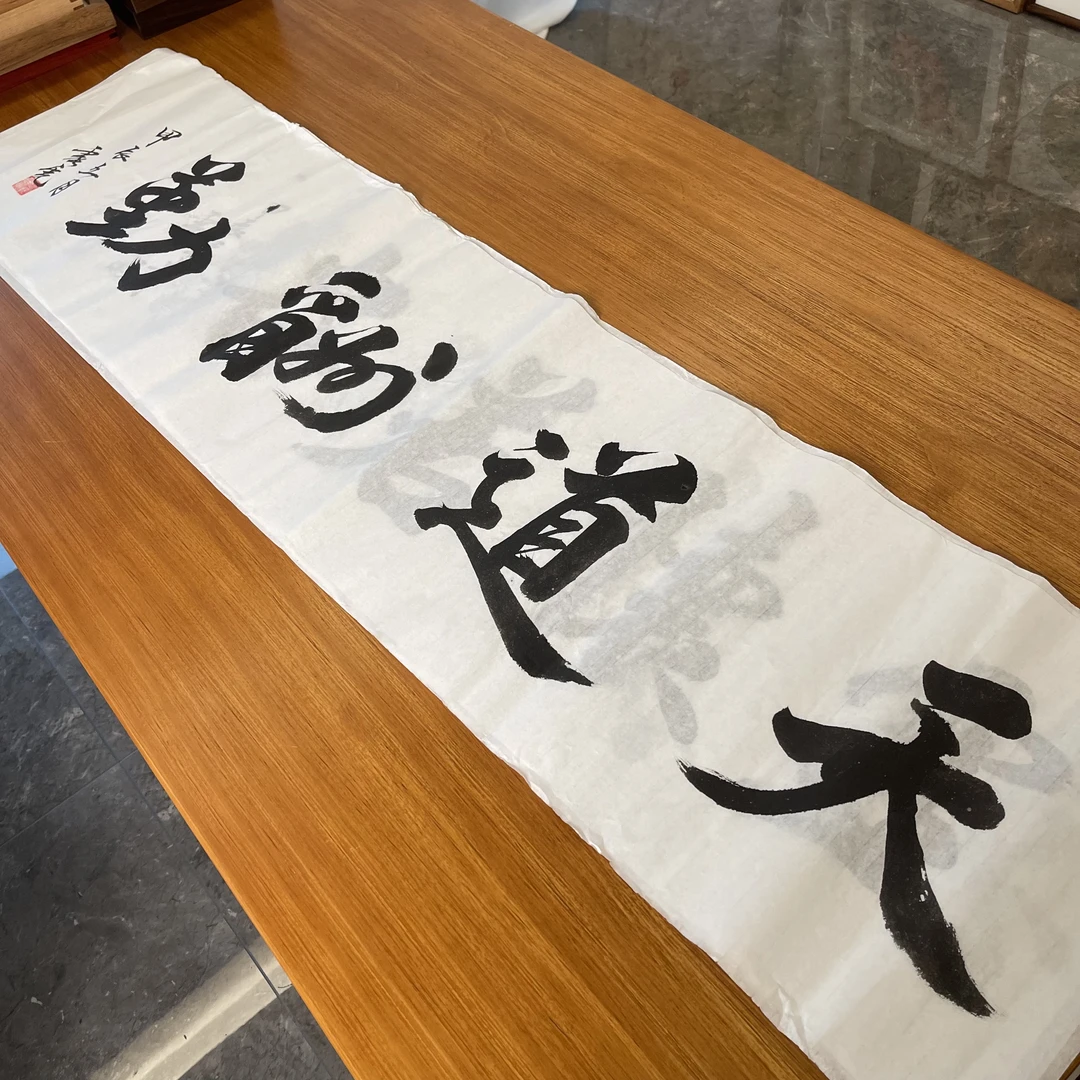 天道酬勤
甲辰月